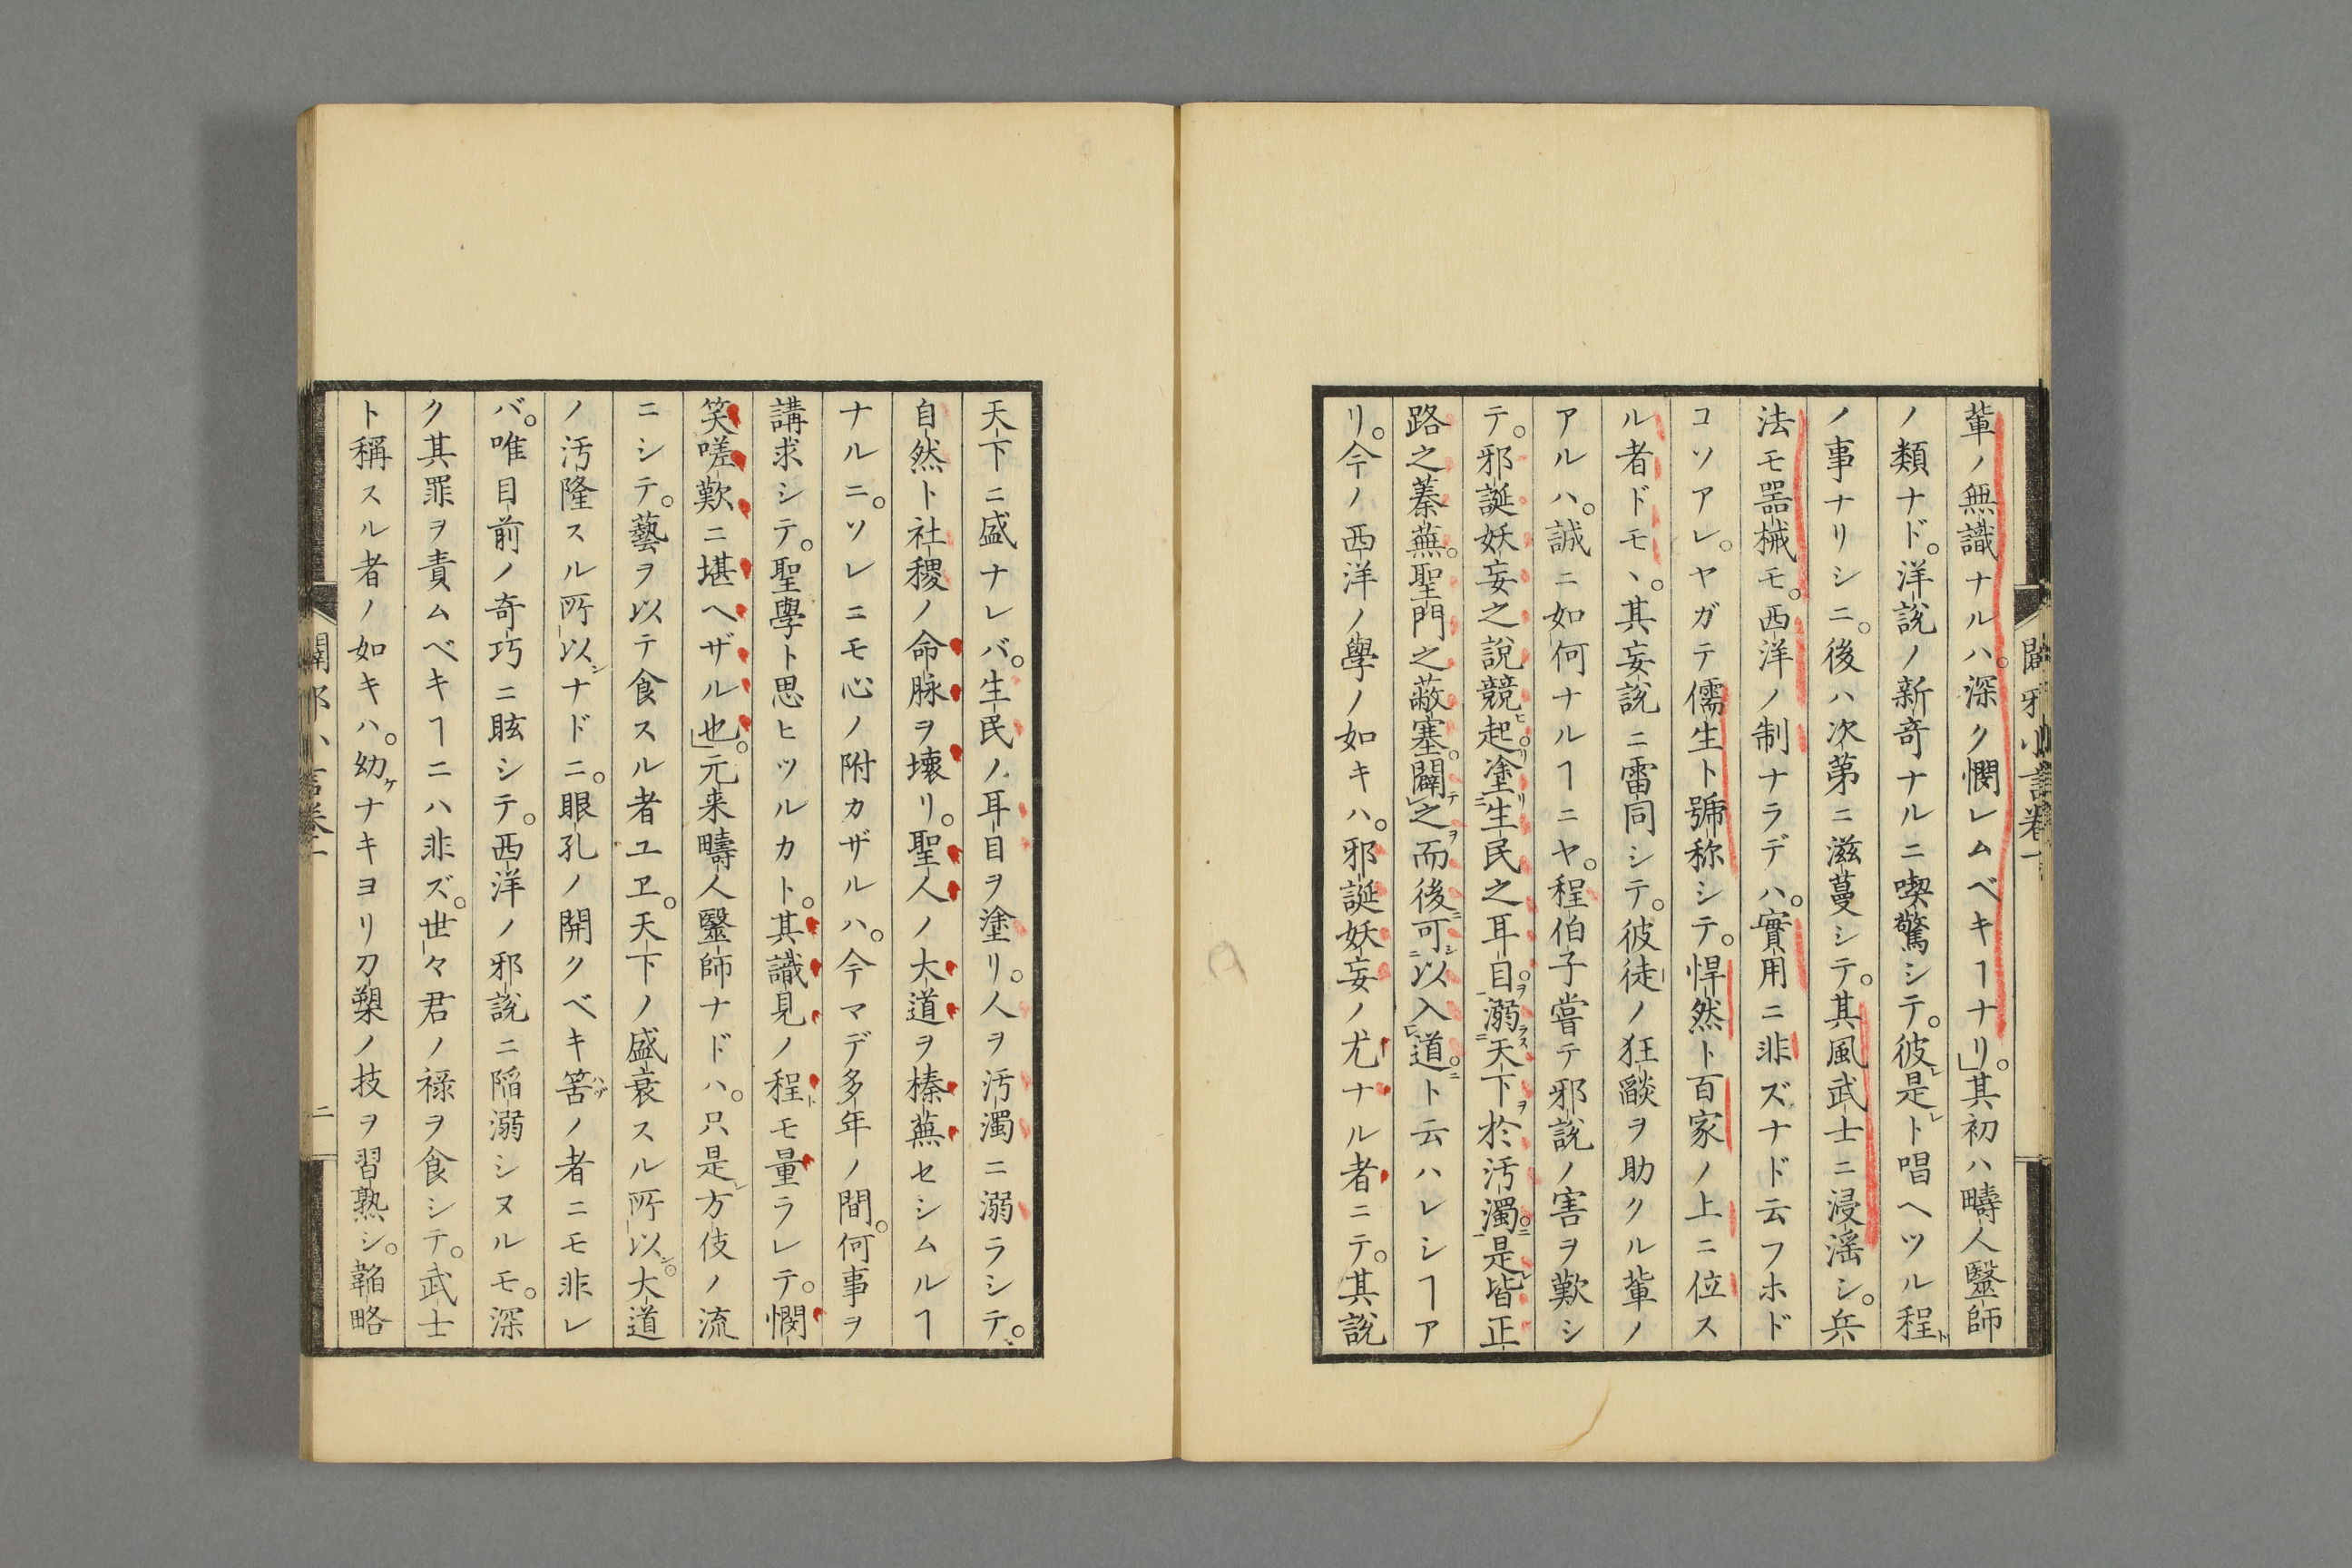 輩ノ無識ナルハ。深ク憫レムベキヿナリ」。其初ハ疇人毉師
ノ類ナド。洋說ノ新竒ナルニ喫驚シテ。彼レ是レト唱ヘツル程ト
ノ事ナリシニ。後ハ次第ニ滋蔓シテ。其風武士ニ浸淫シ。兵
法モ噐械モ。西洋ノ制ナラデハ。實用ニ非ズナド云フホド
コソアレ。ヤガテ儒生ト號称シテ。悍然ト百家ノ上ニ位ス
ル者ドモヽ。其妄說ニ雷同シテ。彼徒ノ狂燄ヲ助クル輩ノ
アルハ。誠ニ如何ナルヿニヤ。程伯子嘗テ邪說ノ害ヲ歎シ
テ。邪誕妖妄之說競ヒ起リ。塗リ二生民之耳目ヲ一。溺ラス二天下ヲ於汚濁ニ一。是レ皆正
路之蓁蕪。聖門之蔽塞。闢テ之ヲ而後ニ可シ二以入ル一道ニ。ト云ハレシヿア
リ。今ノ西洋ノ學ノ如キハ。邪誕妖妄ノ尤ナル者ニテ。其說
闢邪小言卷一
天下ニ盛ナレバ。生民ノ耳目ヲ塗リ。人ヲ汚濁ニ溺ラシテ。
自然ト社稷ノ命脉ヲ壞リ。聖人ノ大道ヲ榛蕪セシムルヿ
ナルニ。ソレニモ心ノ附カザルハ。今マデ多年ノ間。何事ヲ
講求シテ。聖學ト思ヒツルカト。其識見ノ程トモ量ラレテ。憫
笑嗟歎ニ堪ヘザル也」。元来疇人毉師ナドハ。只是レ方伎ノ流
ニシテ。藝ヲ以テ食スル者ユヱ。天下ノ盛衰スル所以シ。大道
ノ汚隆スル所以シナドニ。眼孔ノ開クベキ筈ハヅノ者ニモ非レ
バ。唯目前ノ奇巧ニ眩シテ。西洋ノ邪說ニ陥溺シヌルモ。深
ク其罪ヲ責ムベキヿニハ非ズ。世々君ノ禄ヲ食シテ。武士
ト稱スル者ノ如キハ。幼ケナキヨリ刀槊ノ技ヲ習熟シ。韜略
闢邪小言卷一
二